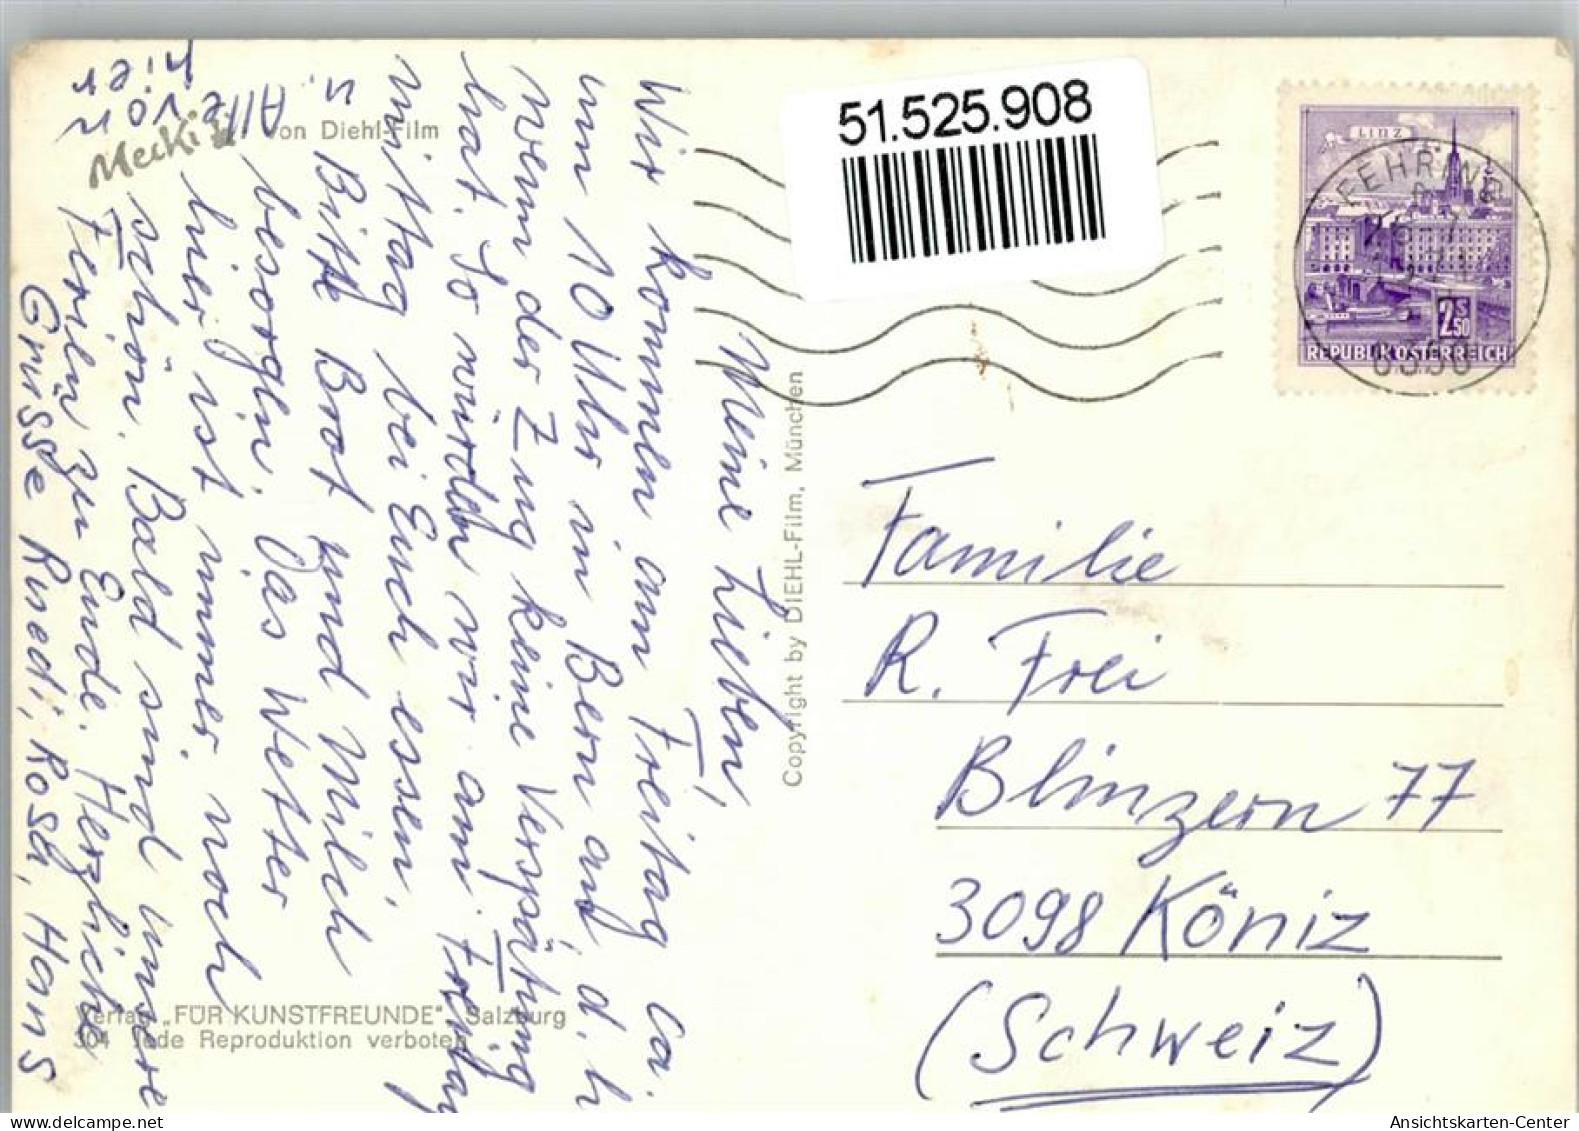 51.525.908
LINZ
FEHRING
8350
2S50
REPUBLIK ÖSTERREICH
Mecki
von Diehl-Film
Meine Lieben,
Wir kommen am Freitag ca.
um 10 Uhr in Bern an, d. h
wenn der Zug keine Verspätung
hat. So würden wir am Freitag
mittag bei Euch essen,
u. Bitte Brot und Milch
besorgen. Das Wetter
hier ist immer noch
schön. Bald sind unsere
Ferien zu Ende. Herzliche
Grüsse Ruedi, Rosa, Hans
Alle von
hier
Copyright by DIEHL-Film, München
Familie
R. Frei
Blinzern 77
3098 Köniz
(Schweiz)
Verlag „FÜR KUNSTFREUNDE", Salzburg
304 Jede Reproduktion verboten
Ansichtskarten-Center